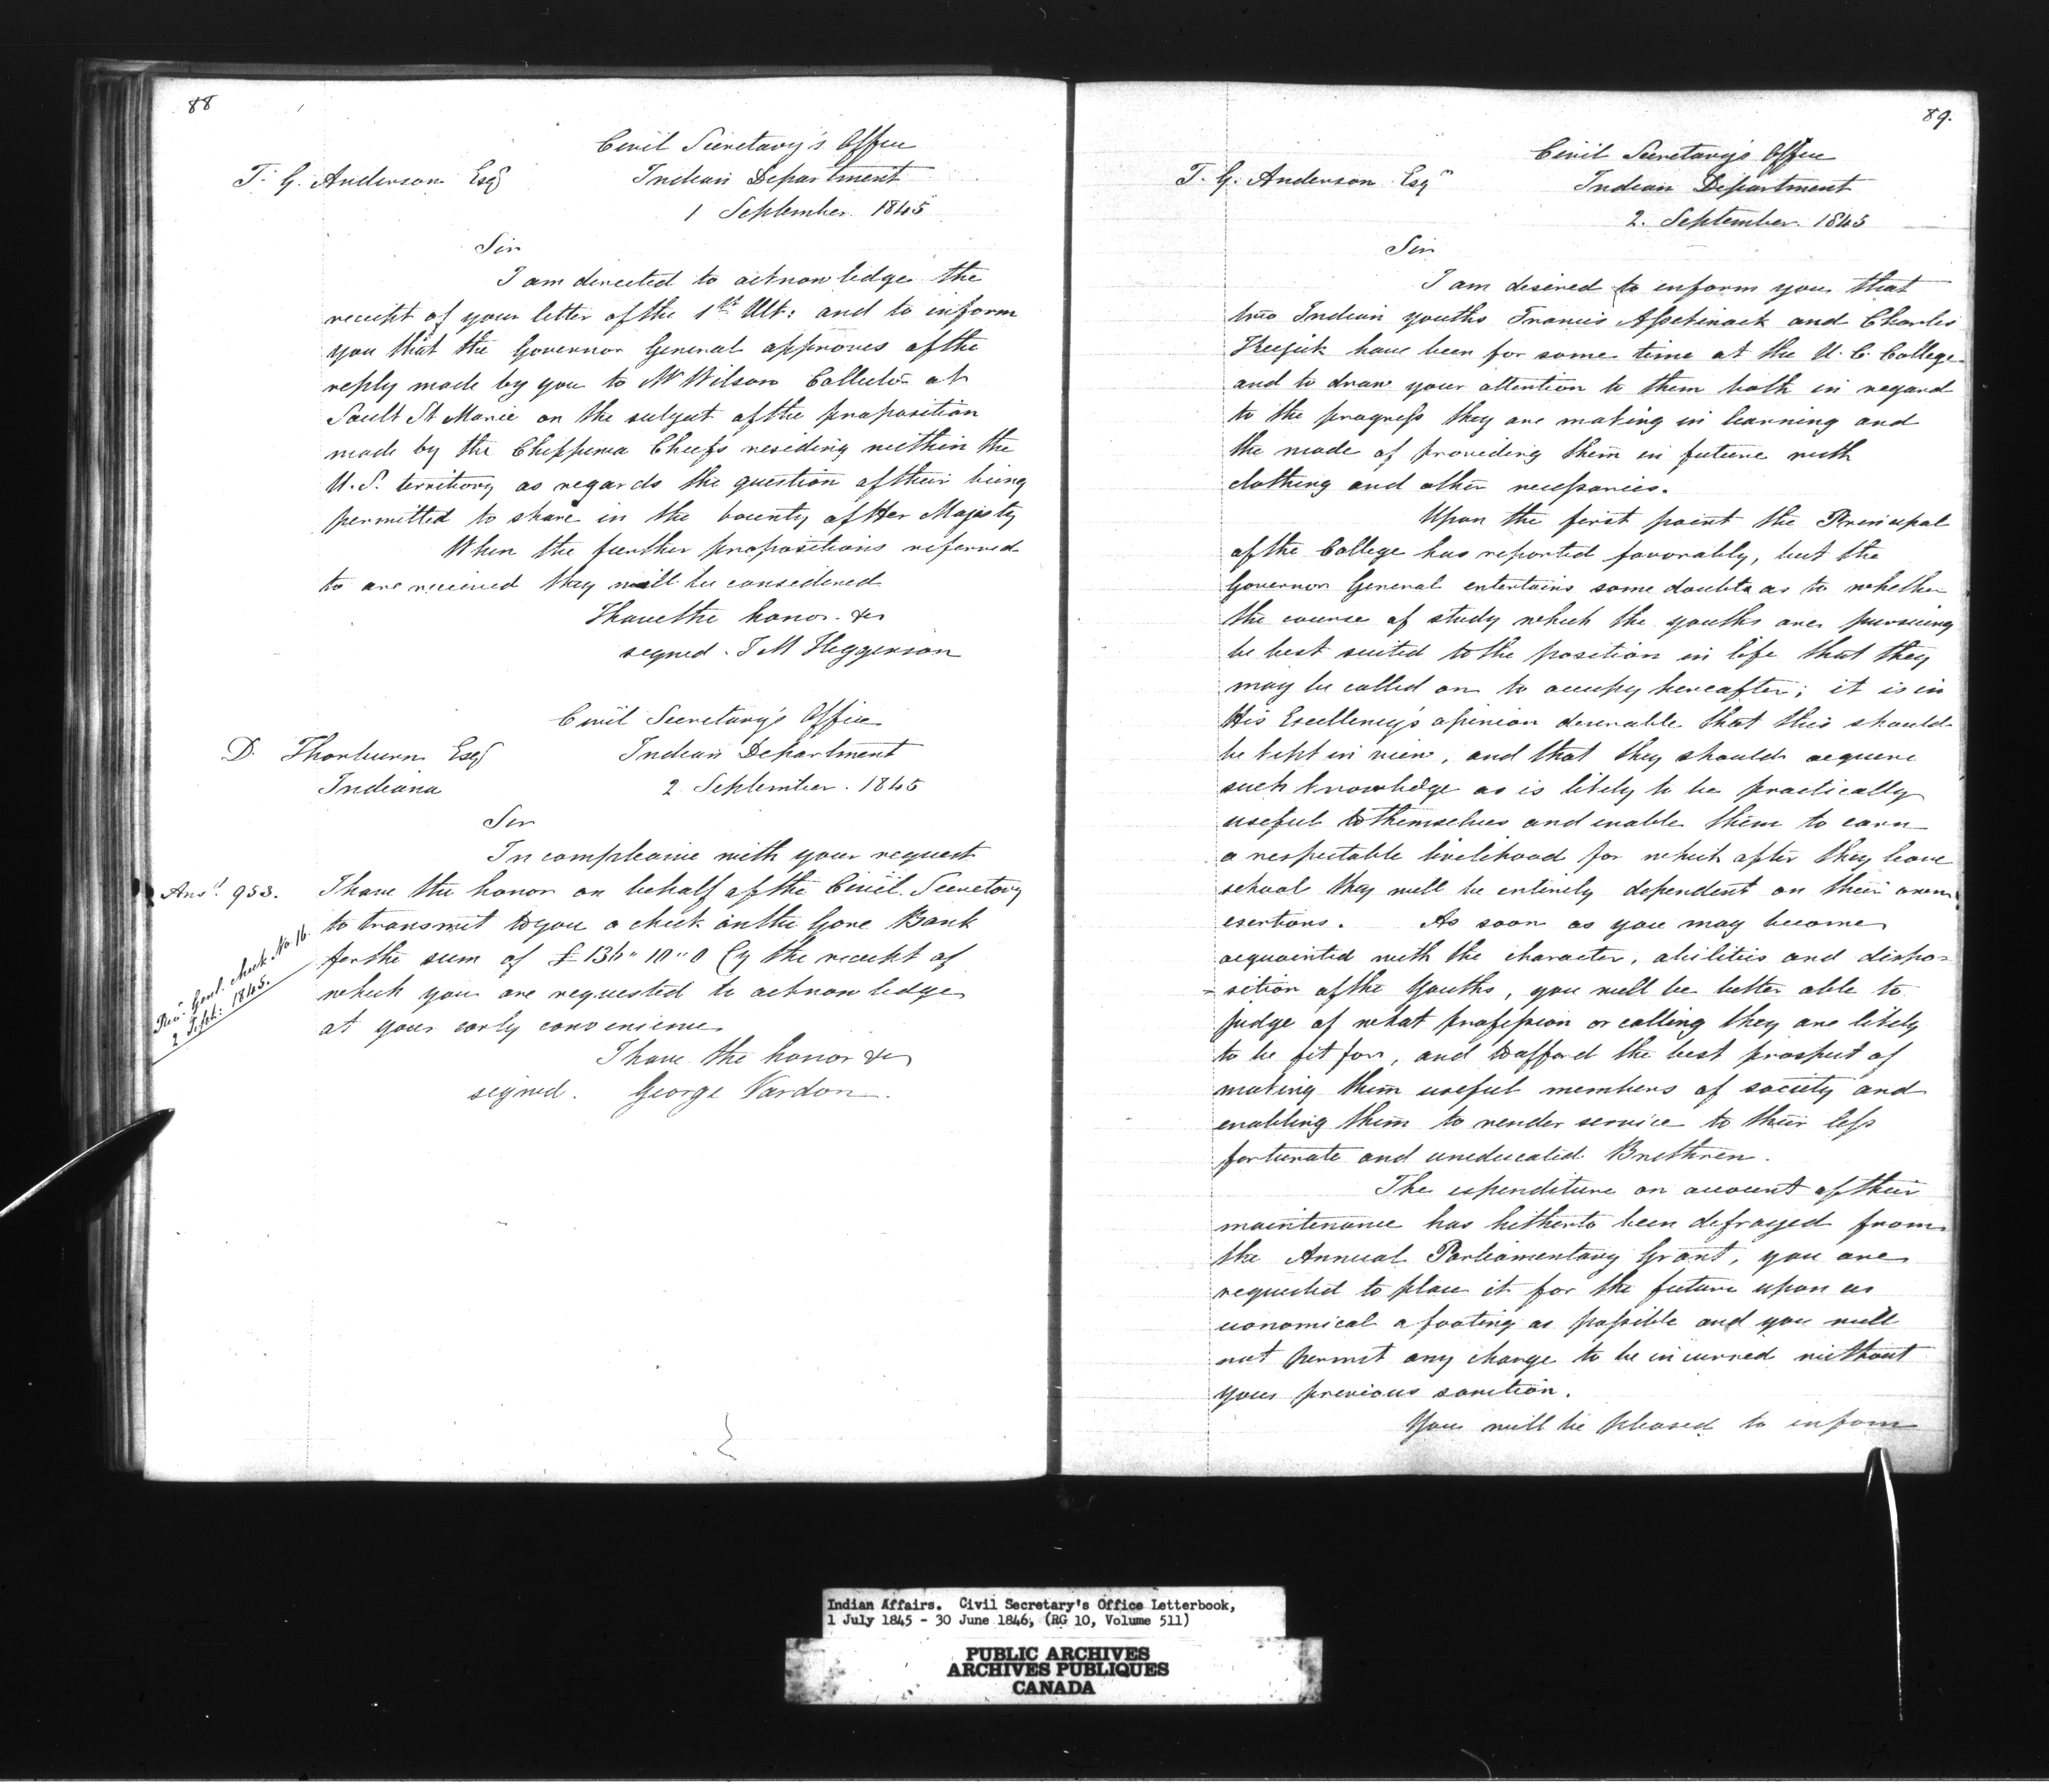 88
Civil Secretary's Office
T. G. Anderson Esqr
Indian Department
1 September 1845
Sir
I am directed to acknowledge the
receipt of your letter of the 1st Ult: and to inform
you that the Governor General approves of the
reply made by you to Mr Wilson Collector at
Sault St Marie on the subject of the proposition
made by the Chippewa Chiefs residing within the
U.S. territory as regards the question of their being
permitted to share in the bounty of Her Majesty
When the further propositions referred
to are received they will be considered
I have the honor &c
signed. J M Higginson
Civil Secretary's Office
D. Thorburn Esqr
Indian Department
Indiana
2 September. 1845
Sir
In compliance with your request
Ansd 953.
I have the honor on behalf of the Civil Secretary
to transmit to you a check on the Gore Bank
for the sum of £ 136" 10" 0 Cy the receipt of
which you are requested to acknowledge
at your early convenience
Genl. check No. 16.
2 Sept: 1845.
I have the honor &c
signed. George Vardon.
89.
Civil Secretary's Office
T. G. Anderson Esqr
Indian Department
2. September. 1845
Sir
I am desired to inform you that
two Indian youths Francis Assekinack and Charles
Keejick have been for some time at the U. C. College
and to draw your attention to them both in regard
to the progress they are making in learning and
the mode of providing them in future with
clothing and other necessaries.
Upon the first point the Principal
of the College has reported favorably, but the
Governor General entertains some doubts as to whether
the course of study which the youths are pursuing
be best suited to the position in life that they
may be called on to occupy hereafter; it is in
His Excellency's opinion desirable that this should
be kept in view, and that they should acquire
such knowledge as is likely to be practically
useful to themselves and enable them to earn
a respectable livelihood for which after they leave
school they will be entirely dependent on their own
exertions. As soon as you may become
acquainted with the character, abilities and dispo=
=sition of the Youths, you will be better able to
judge of what profession or calling they are likely
to be fit for, and to afford the best prospect of
making them useful members of society and
enabling them to render service to their less
fortunate and uneducated Brethren.
The expenditure on account of their
maintenance has hitherto been defrayed from
the Annual Parliamentary Grant, you are
requested to place it for the future upon as
economical a footing as possible and you will
not permit any charge to be incurred without
your previous sanction.
You will be pleased to inform
Indian Affairs. Civil Secretary's Office Letterbook,
1 July 1845 - 30 June 1846, (RG 10, Volume 511)
PUBLIC ARCHIVES
ARCHIVES PUBLIQUES
CANADA